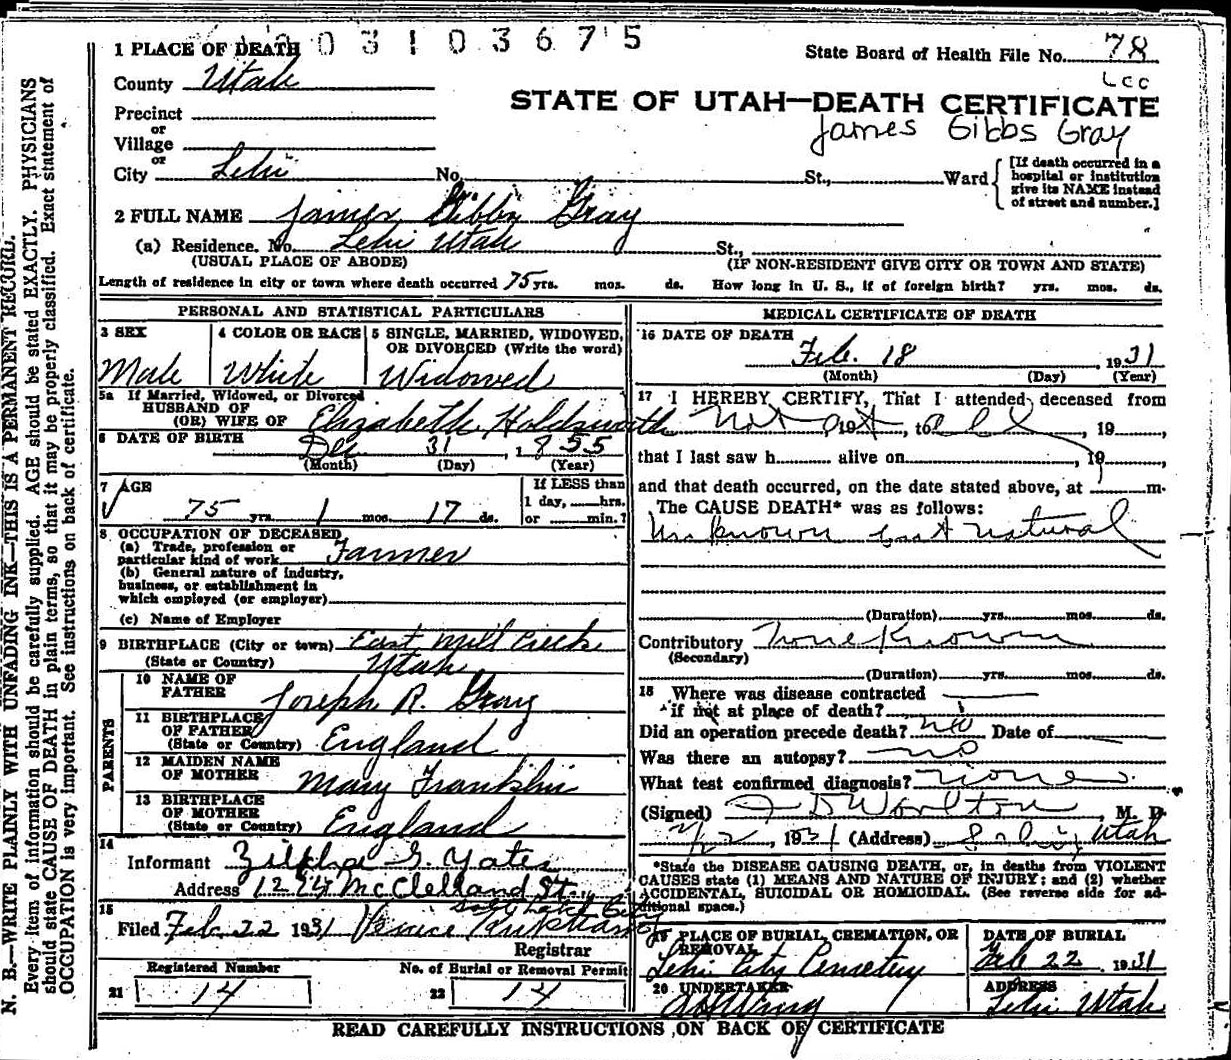 0 3 1 0 3 6 7 5
1 PLACE OF DEATH
State Board of Health File No. 78
County Utah
Lcc
STATE OF UTAH—DEATH CERTIFICATE
Precinct
James Gibbs Gray
or
Village
or
City Lehi No. St., Ward
[If death occurred in a
hospital or institution
give its NAME instead
of street and number.]
2 FULL NAME James Gibbs Gray
(a) Residence. No. Lehi Utah St.,
(USUAL PLACE OF ABODE) (IF NON-RESIDENT GIVE CITY OR TOWN AND STATE)
Length of residence in city or town where death occurred 75 yrs. mos. ds. How long in U. S., if of foreign birth? yrs. mos. ds.
PERSONAL AND STATISTICAL PARTICULARS
3 SEX
Male
4 COLOR OR RACE
White
5 SINGLE, MARRIED, WIDOWED,
OR DIVORCED (Write the word)
Widowed
5a If Married, Widowed, or Divorced
HUSBAND OF
(OR) WIFE OF Elizabeth Holdsworth
6 DATE OF BIRTH Dec 31, 1855
(Month) (Day) (Year)
7 AGE
75 yrs. 1 mos. 17 ds.
If LESS than
1 day, hrs.
or min.?
8 OCCUPATION OF DECEASED
(a) Trade, profession or
particular kind of work Farmer
(b) General nature of industry,
business, or establishment in
which employed (or employer)
(c) Name of Employer
9 BIRTHPLACE (City or town) East Mill Creek
(State or Country) Utah
PARENTS
10 NAME OF
FATHER Joseph R. Gray
11 BIRTHPLACE
OF FATHER
(State or Country) England
12 MAIDEN NAME
OF MOTHER Mary Franklin
13 BIRTHPLACE
OF MOTHER
(State or Country) England
14
Informant Zilpha G. Yates
Address 1224 McClelland St.
Salt Lake City
15
Filed Feb. 22 1931
Registrar
Registered Number
21 14
No. of Burial or Removal Permit
22 14
MEDICAL CERTIFICATE OF DEATH
16 DATE OF DEATH
Feb. 18, 1931
(Month) (Day) (Year)
17 I HEREBY CERTIFY, That I attended deceased from
Not at all, 19, to, 19,
that I last saw h alive on, 19,
and that death occurred, on the date stated above, at m.
The CAUSE DEATH* was as follows:
Unknown but natural
(Duration) yrs. mos. ds.
Contributory None Known
(Secondary)
(Duration) yrs. mos. ds.
18 Where was disease contracted
if not at place of death?
Did an operation precede death? no Date of
Was there an autopsy? no
What test confirmed diagnosis? none
(Signed), M. D.
, 1931 (Address) Lehi, Utah
*State the DISEASE CAUSING DEATH, or, in deaths from VIOLENT
CAUSES state (1) MEANS AND NATURE OF INJURY; and (2) whether
ACCIDENTAL, SUICIDAL OR HOMICIDAL. (See reverse side for ad-
ditional space.)
19 PLACE OF BURIAL, CREMATION, OR
REMOVAL
Lehi City Cemetery
DATE OF BURIAL
Feb 22, 1931
20 UNDERTAKER
ADDRESS
Lehi Utah
READ CAREFULLY INSTRUCTIONS ON BACK OF CERTIFICATE
N. B.—WRITE PLAINLY WITH UNFADING INK—THIS IS A PERMANENT RECORD.
Every item of information should be carefully supplied. AGE should be stated EXACTLY. PHYSICIANS
should state CAUSE OF DEATH in plain terms, so that it may be properly classified. Exact statement of
OCCUPATION is very important. See instructions on back of certificate.